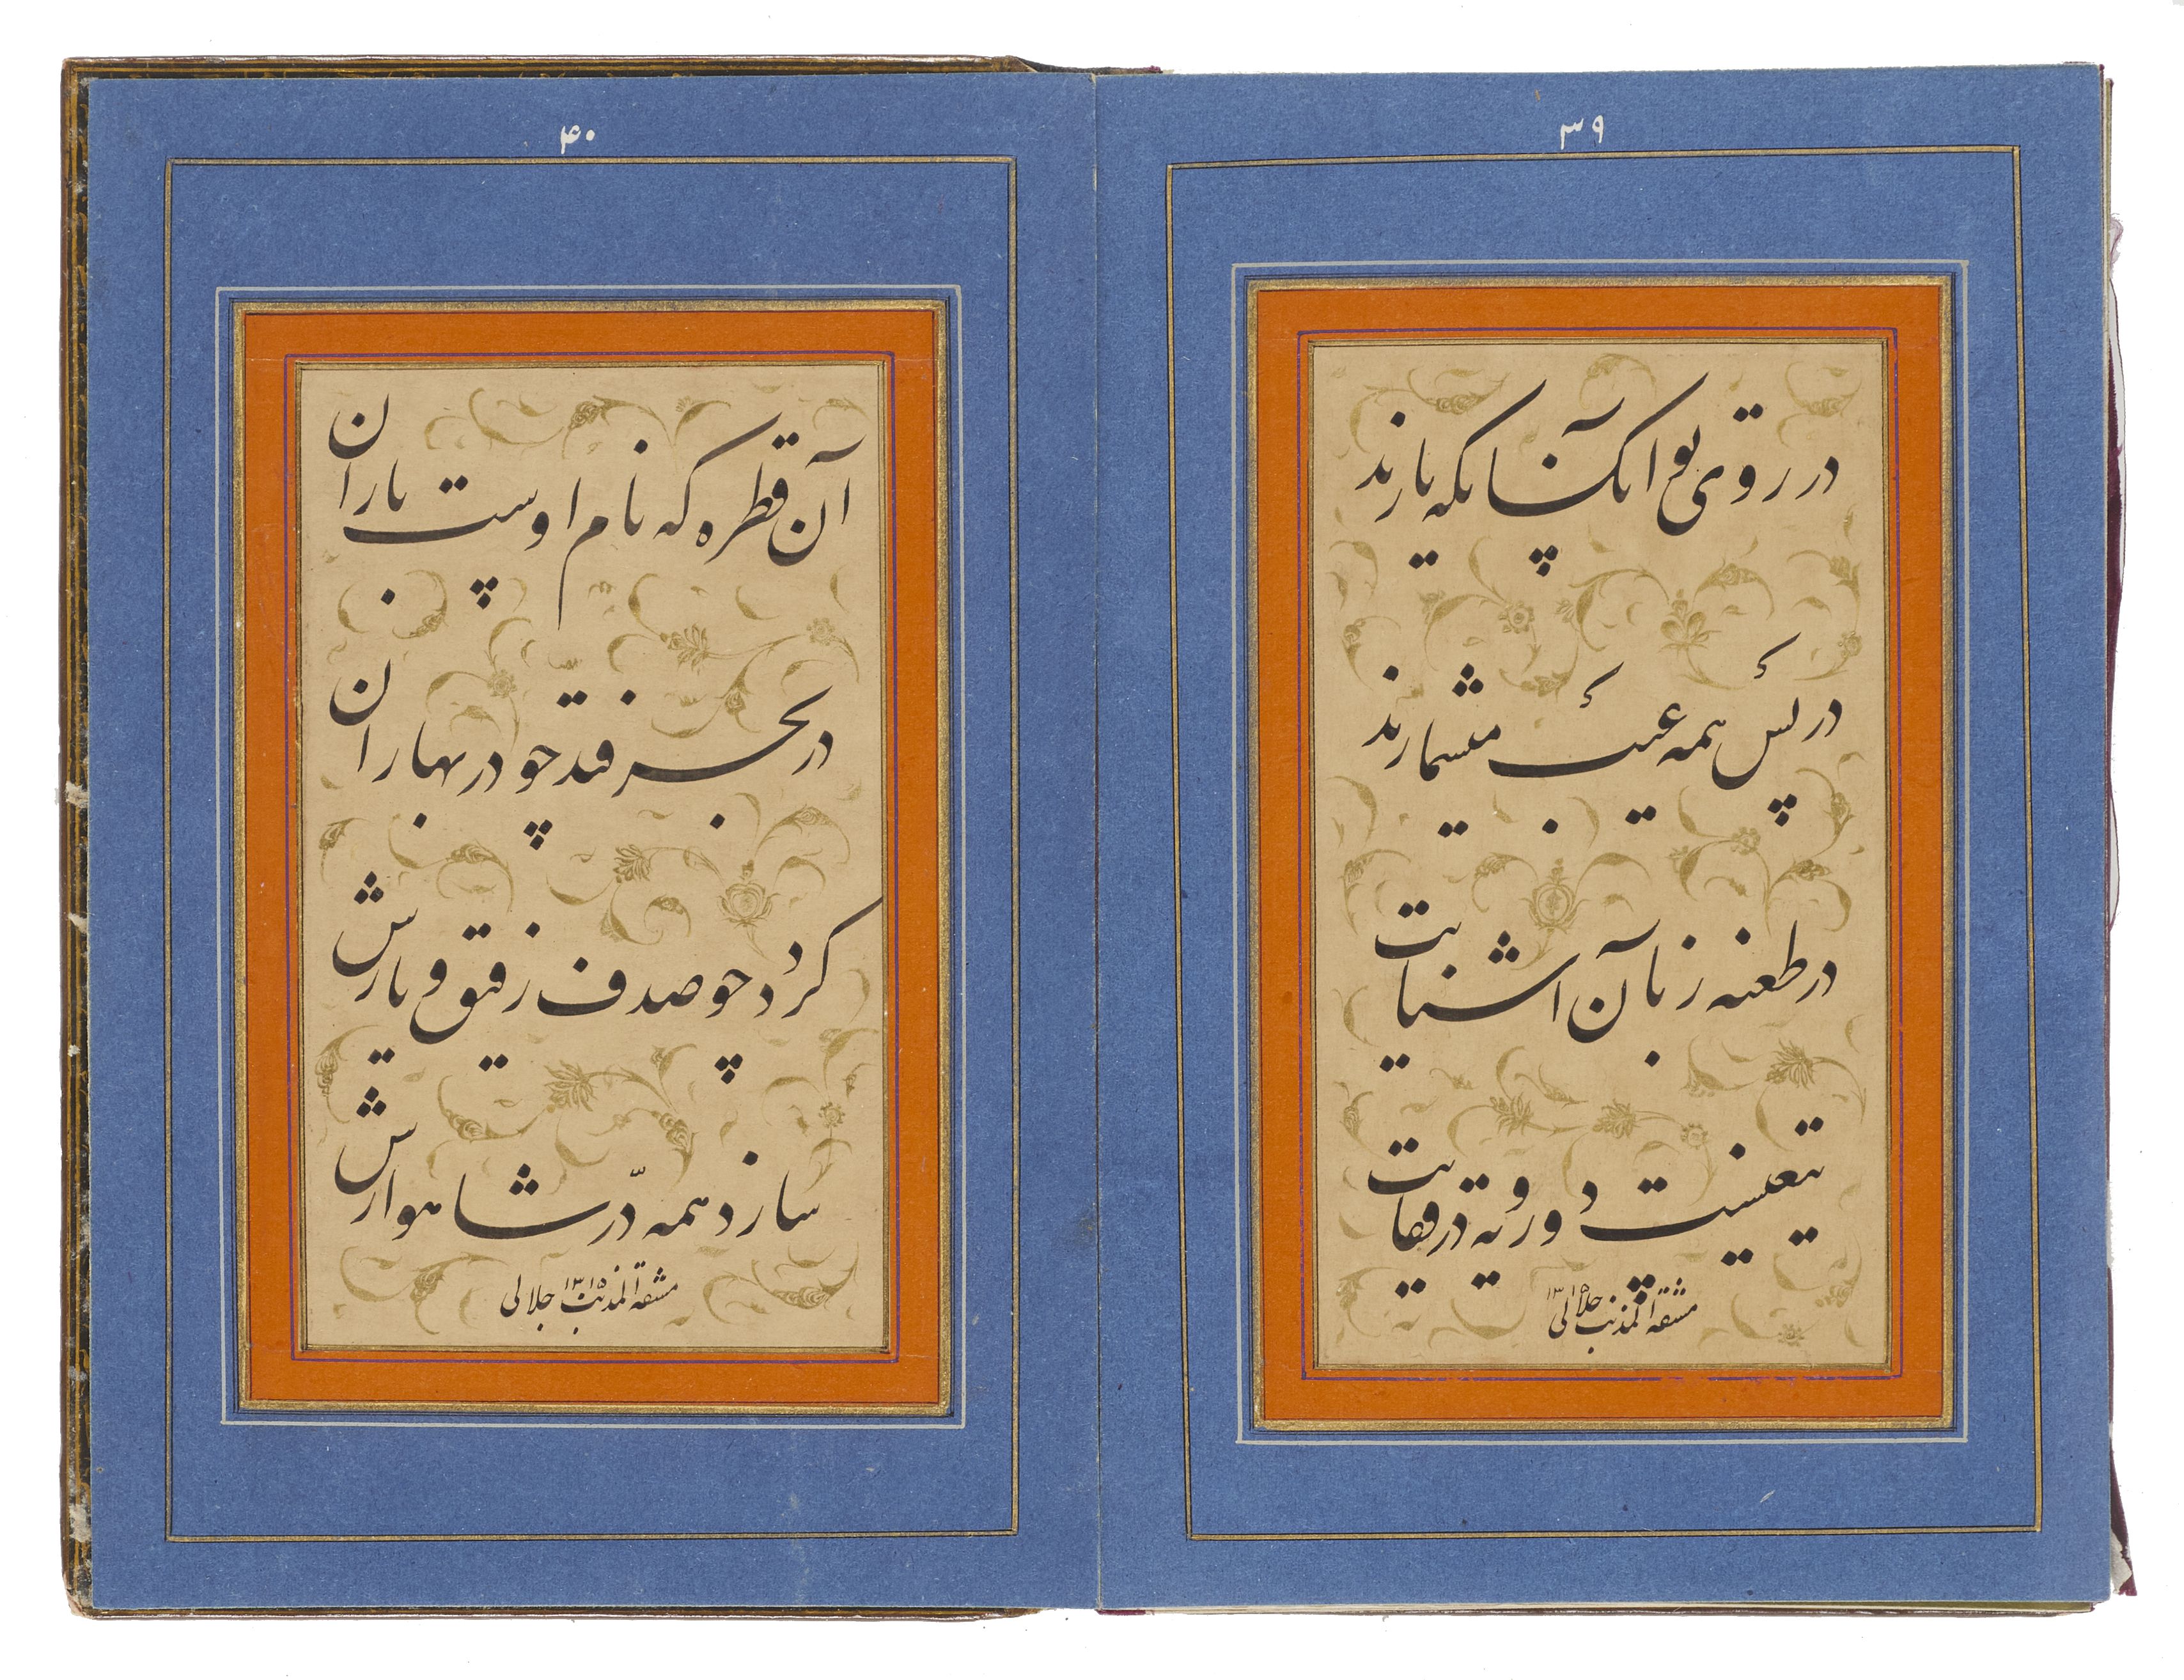 ۳۹
در روی تو آنکسانکه یارند
در پس همه عیب میشمارند
در طعنه زبان آشنایت
تیغیست دو رویه در قفایت
مشقه المذنب جلالی ۱۳۱۵
۴۰
آن قطره که نام اوست باران
در بحر فتد چو در بهاران
گردد چو صدف رفیق و یارش
سازد همه درّ شاهوارش
مشقه المذنب جلالی ۱۳۱۵